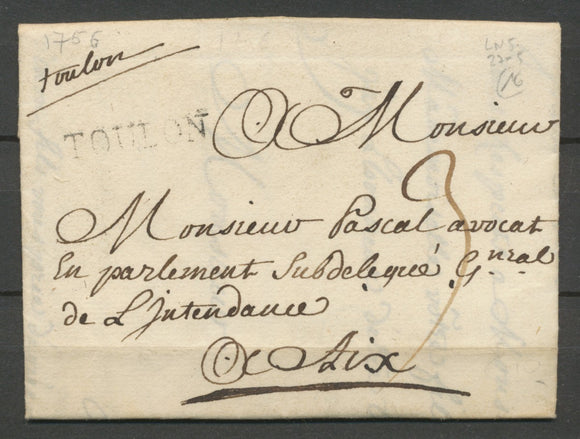 1756
toulon
LN5
TOULON
A Monsieur
3
Monsieur Pascal avocat
En parlement Subdelegué G.nral
de L'Intendance
A Aix